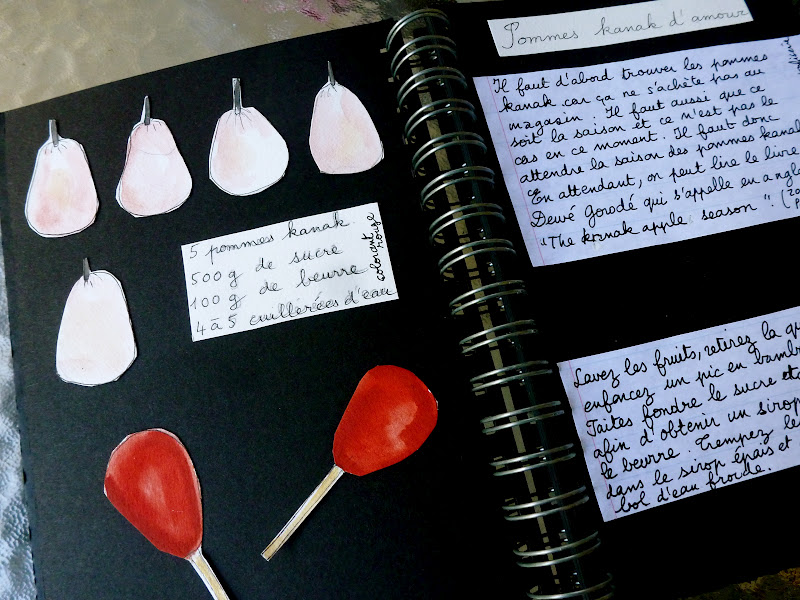 5 pommes kanak.
500 g de sucre
100 g de beurre
4 à 5 cuillerées d'eau
colorant
rouge
Pommes kanak d'amour
Il faut d'abord trouver les pommes
kanak car ça ne s'achète pas au
magasin. Il faut aussi que ce
soit la saison et ce n'est pas le
cas en ce moment. Il faut donc
attendre la saison des pommes kanak
En attendant, on peut lire le livre
Dewé Gorodé qui s'appelle en
"The kanak apple season". (
Lavez les fruits, retirez la
enfoncez un pic en
Faites fondre le sucre
afin d'obtenir un sirop
le beurre. Trempez les
dans le sirop épais et
bol d'eau froide.